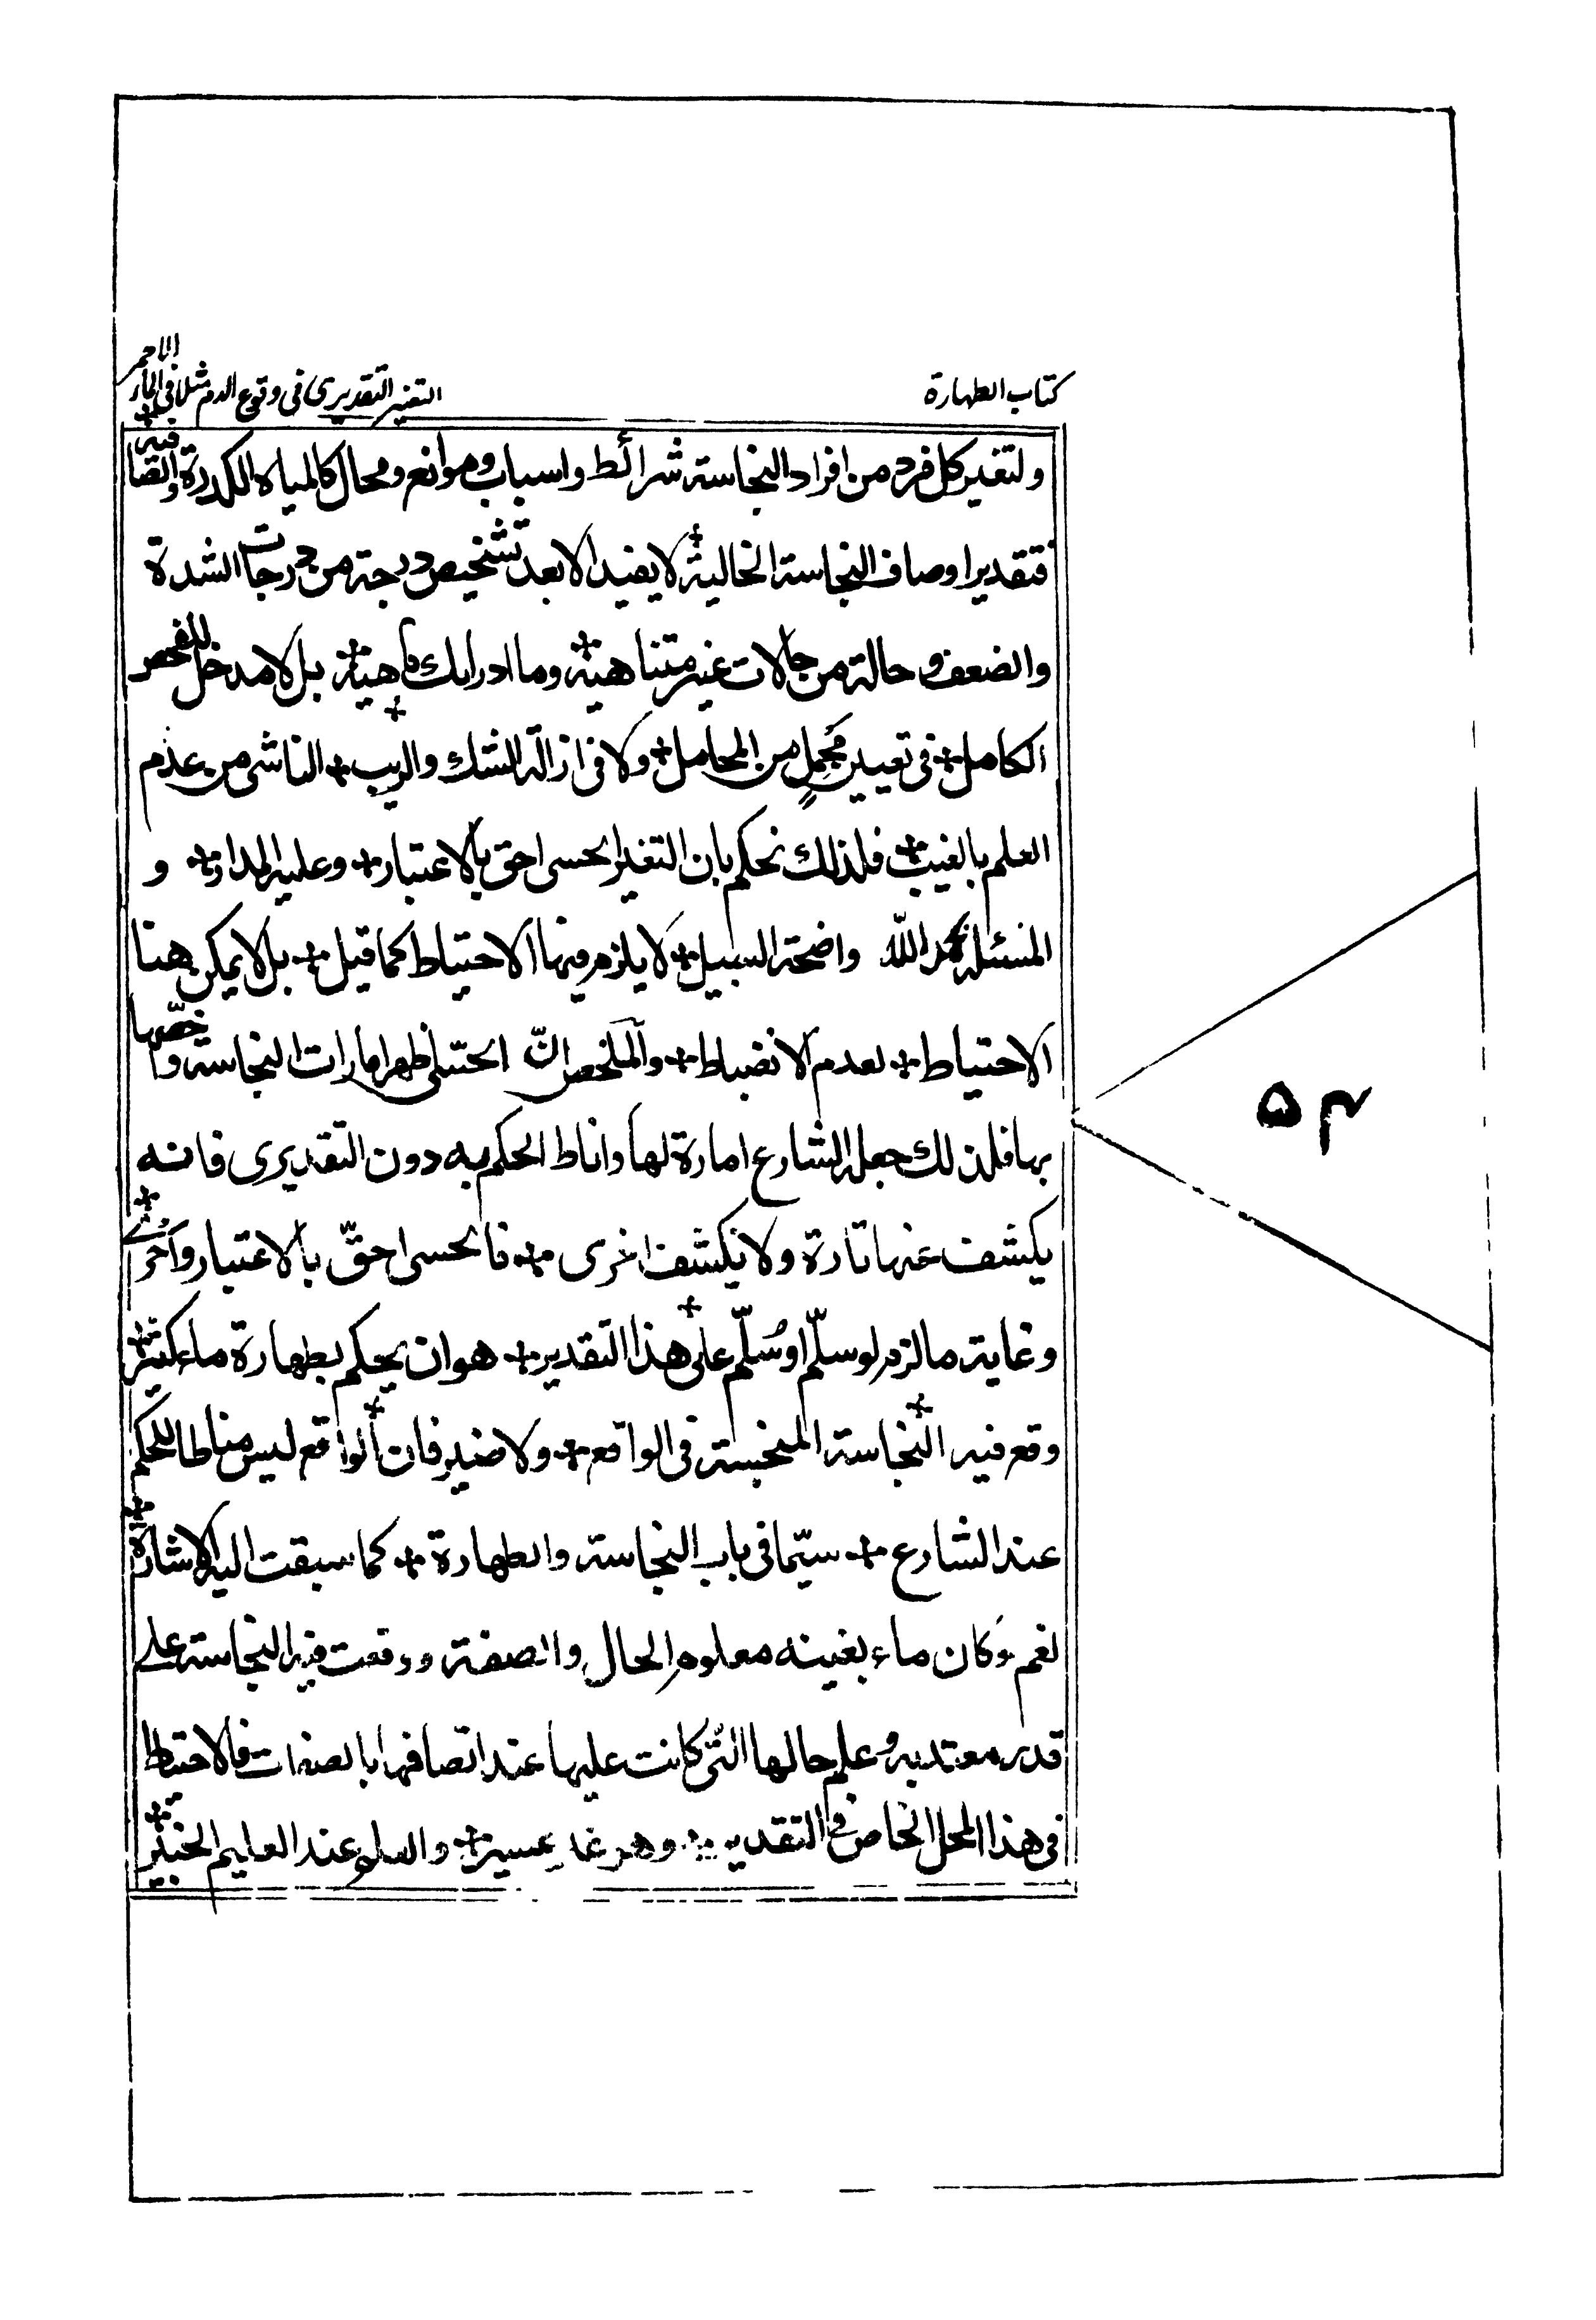 كتاب الطهارة
التغير التقديرى فى وقوع الدم مثلا فى الماء الاحمر
ولتغير كل فرد من افراد النجاسة شرائط واسباب وموانع ومحال كالمياه الكدرة والصافية
فتقدير اوصاف النجاسة الخالية لا يفيد الا بعد تشخيص درجة من درجات الشدة
والضعف وحالة من حالات غير متناهية وما ادرايك ماهية بل لا مدخل للفحص
الكامل فى تعيين محمل من المحامل ولا فى ازالة الشك والريب الناشى من عدم
العلم بالغيب فلذلك نحكم بان التغير الحسى احق بالاعتبار وعليه المدار و
المسئلة بحمد الله واضحة السبيل لا يلزم فيها الاحتياط كما قيل بل لا يمكن هنا
الاحتياط لعدم الانضباط والملخص ان الحسى اظهر امارات النجاسة واخصها
بها فلذلك جعله الشارع امارة لها واناط الحكم به دون التقديرى فانه
يكشف عنها تارة ولا يكشف اخرى فالحسى احقّ بالاعتبار واحرى
وغاية مالزم لو سلّم او سُلّم على هذا التقدير هو ان يحكم بطهارة ماء كثير
وقع فيه النجاسة المنجسة فى الواقع ولا ضير فان الواقع ليس مناطا للحكم
عند الشارع سيّما فى باب النجاسة والطهارة كما سبقت اليه الاشارة
نعم لو كان ماء بعينه معلوم الحال والصفة ووقعت فيه النجاسة على
قدر معتد به وعلم حالها التى كانت عليها عند اتصافها بالصفات فالاحتياط
فى هذا المحل الخاص فى التقدير وهو غير عسير والعلم عند العليم الخبير
۵۳